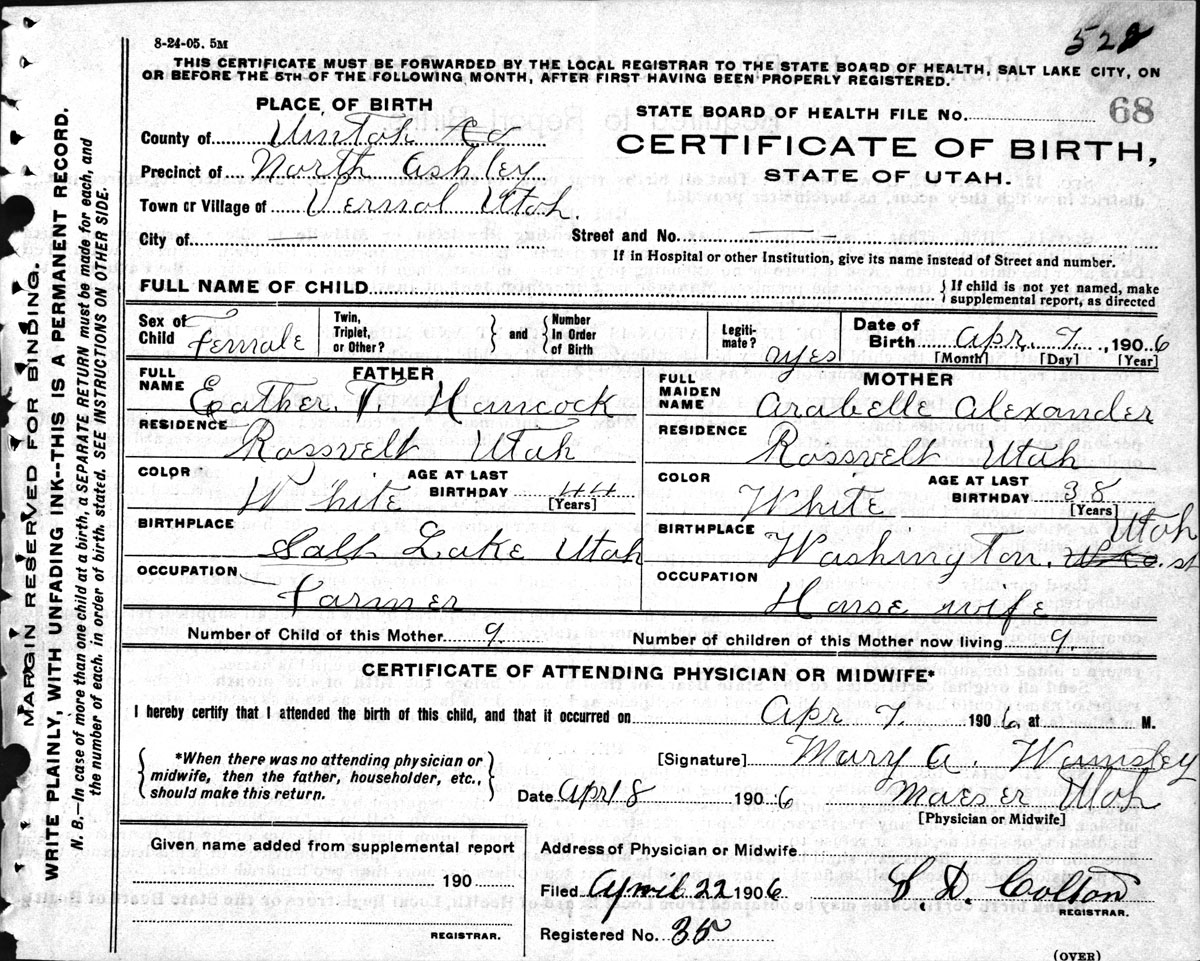 8-24-05. 5M
522
THIS CERTIFICATE MUST BE FORWARDED BY THE LOCAL REGISTRAR TO THE STATE BOARD OF HEALTH, SALT LAKE CITY, ON
OR BEFORE THE 5TH OF THE FOLLOWING MONTH, AFTER FIRST HAVING BEEN PROPERLY REGISTERED.
MARGIN RESERVED FOR BINDING.
WRITE PLAINLY, WITH UNFADING INK--THIS IS A PERMANENT RECORD.
N. B.—In case of more than one child at a birth, a SEPARATE RETURN must be made for each, and
the number of each, in order of birth, stated. SEE INSTRUCTIONS ON OTHER SIDE.
PLACE OF BIRTH
County of Uintah Co
Precinct of North Ashley
Town or Village of Vernal Utah.
City of —
STATE BOARD OF HEALTH FILE No. 68
CERTIFICATE OF BIRTH,
STATE OF UTAH.
Street and No. —
If in Hospital or other Institution, give its name instead of Street and number.
FULL NAME OF CHILD
{ If child is not yet named, make
supplemental report, as directed
Sex of Child Female
Twin, Triplet, or Other? } and { Number in Order of Birth
Legiti-mate? yes
Date of Birth Apr. 7., 1906
[Month] [Day] [Year]
FATHER
FULL NAME Eather. T. Hancock
RESIDENCE Rossvelt Utah
COLOR White
AGE AT LAST BIRTHDAY 44
[Years]
BIRTHPLACE Salt Lake Utah
OCCUPATION Farmer
MOTHER
FULL MAIDEN NAME Arabelle Alexander
RESIDENCE Rossvelt Utah
COLOR White
AGE AT LAST BIRTHDAY 38
[Years]
BIRTHPLACE Washington, Utah
st
OCCUPATION House wife
Number of Child of this Mother 9.
Number of children of this Mother now living 9.
CERTIFICATE OF ATTENDING PHYSICIAN OR MIDWIFE*
I hereby certify that I attended the birth of this child, and that it occurred on Apr 7. 1906 at M.
{ *When there was no attending physician or
midwife, then the father, householder, etc.,
should make this return. }
[Signature] Mary A. Wamsley
Date Apr 8 1906 Maeser Utah
[Physician or Midwife]
Given name added from supplemental report
190
REGISTRAR.
Address of Physician or Midwife
Filed April 22 1906 S. D. Colton
REGISTRAR.
Registered No. 35
(OVER)